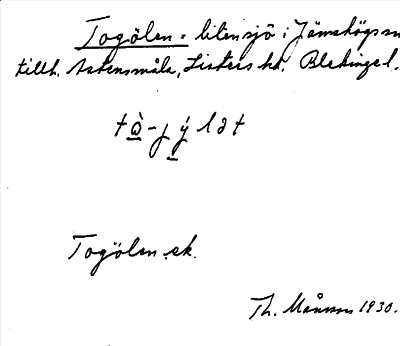 Togölen = liten sjö i Jämshögs sn
tillh. Astensmåla, Listers hd. Blekinge l.
tò-jýlət
Togölen ek.
Th. Månsson 1930.